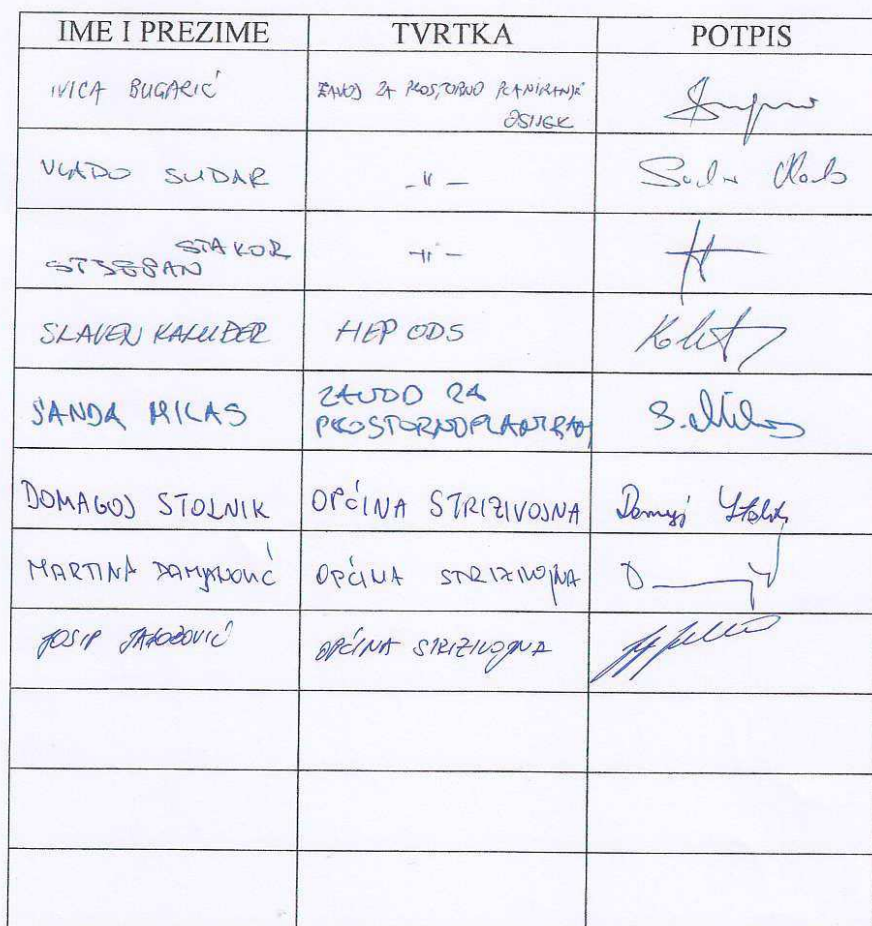 IME I PREZIME TVRTKA POTPIS
IVICA BUGARIĆ ZAVOD ZA PROSTORNO PLANIRANJE
OSIJEK
VLADO SUDAR -"-
STAKOR
STJEPAN -"-
SLAVEN KALUĐER HEP ODS
SANDA MILAS ZAVOD ZA
PROSTORNO S. Milas
DOMAGOJ STOLNIK OPĆINA STRIZIVOJNA Domagoj Stolnik
MARTINA DAMJANOVIĆ OPĆINA STRIZIVOJNA
JOSIP OPĆINA STRIZIVOJNA